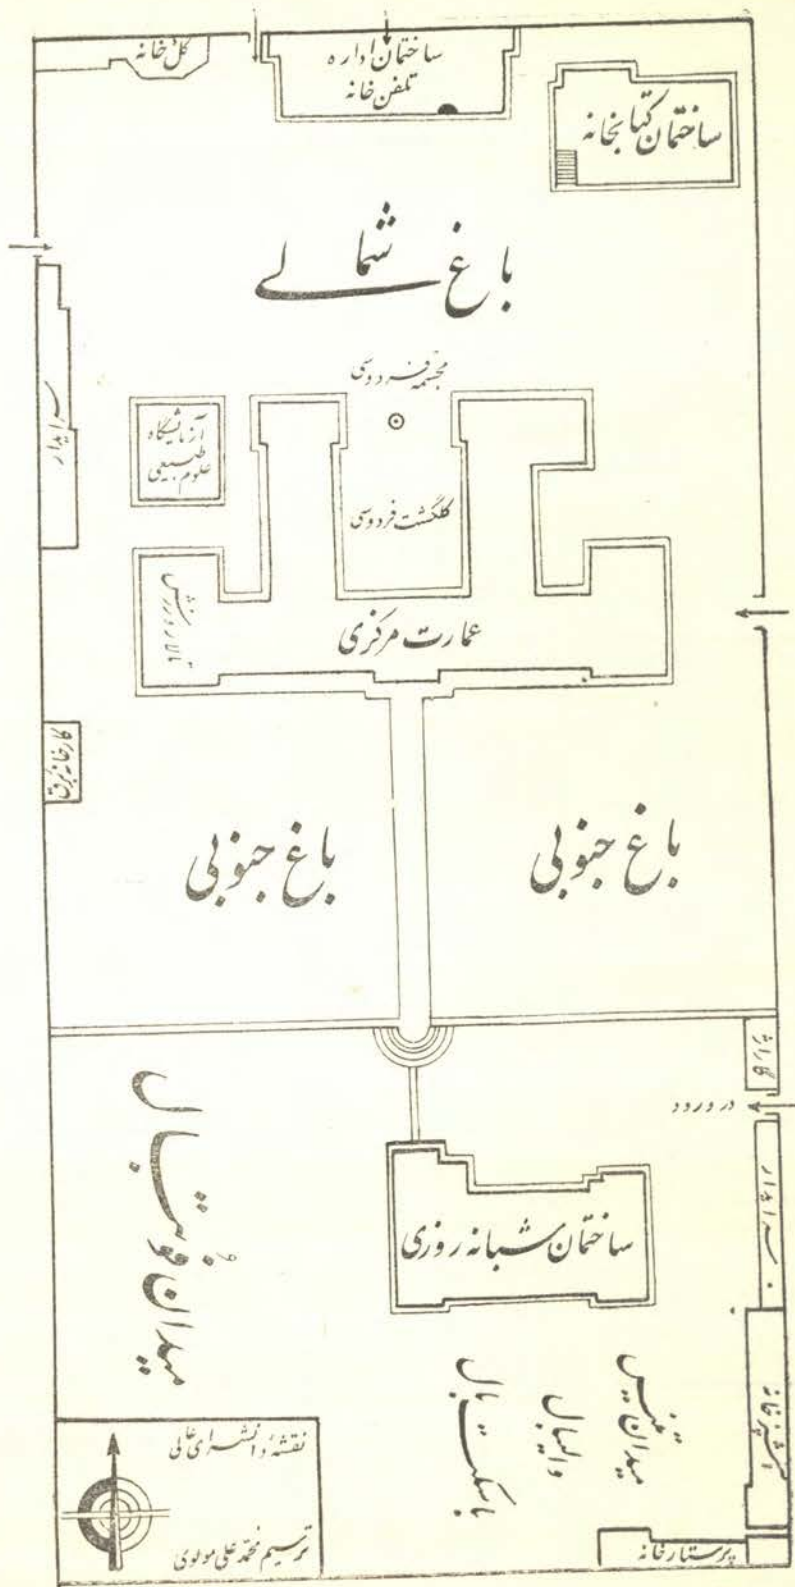 گلخانه
ساختمان اداره
تلفن خانه
ساختمان کتابخانه
باغ شمالی
مجسمه فردوسی
سرایدار
آزمایشگاه
علوم طبیعی
گلگشت فردوسی
تالار ورزش
عمارت مرکزی
کارخانه برق
باغ جنوبی
باغ جنوبی
گاراژ
در ورود
میدان فوتبال
سرایدار
ساختمان شبانه روزی
میدان تنیس
والیبال
باسکت بال
آشپزخانه
پرستارخانه
نقشهٔ دانشسرای عالی
ترسیم محمد علی مولوی